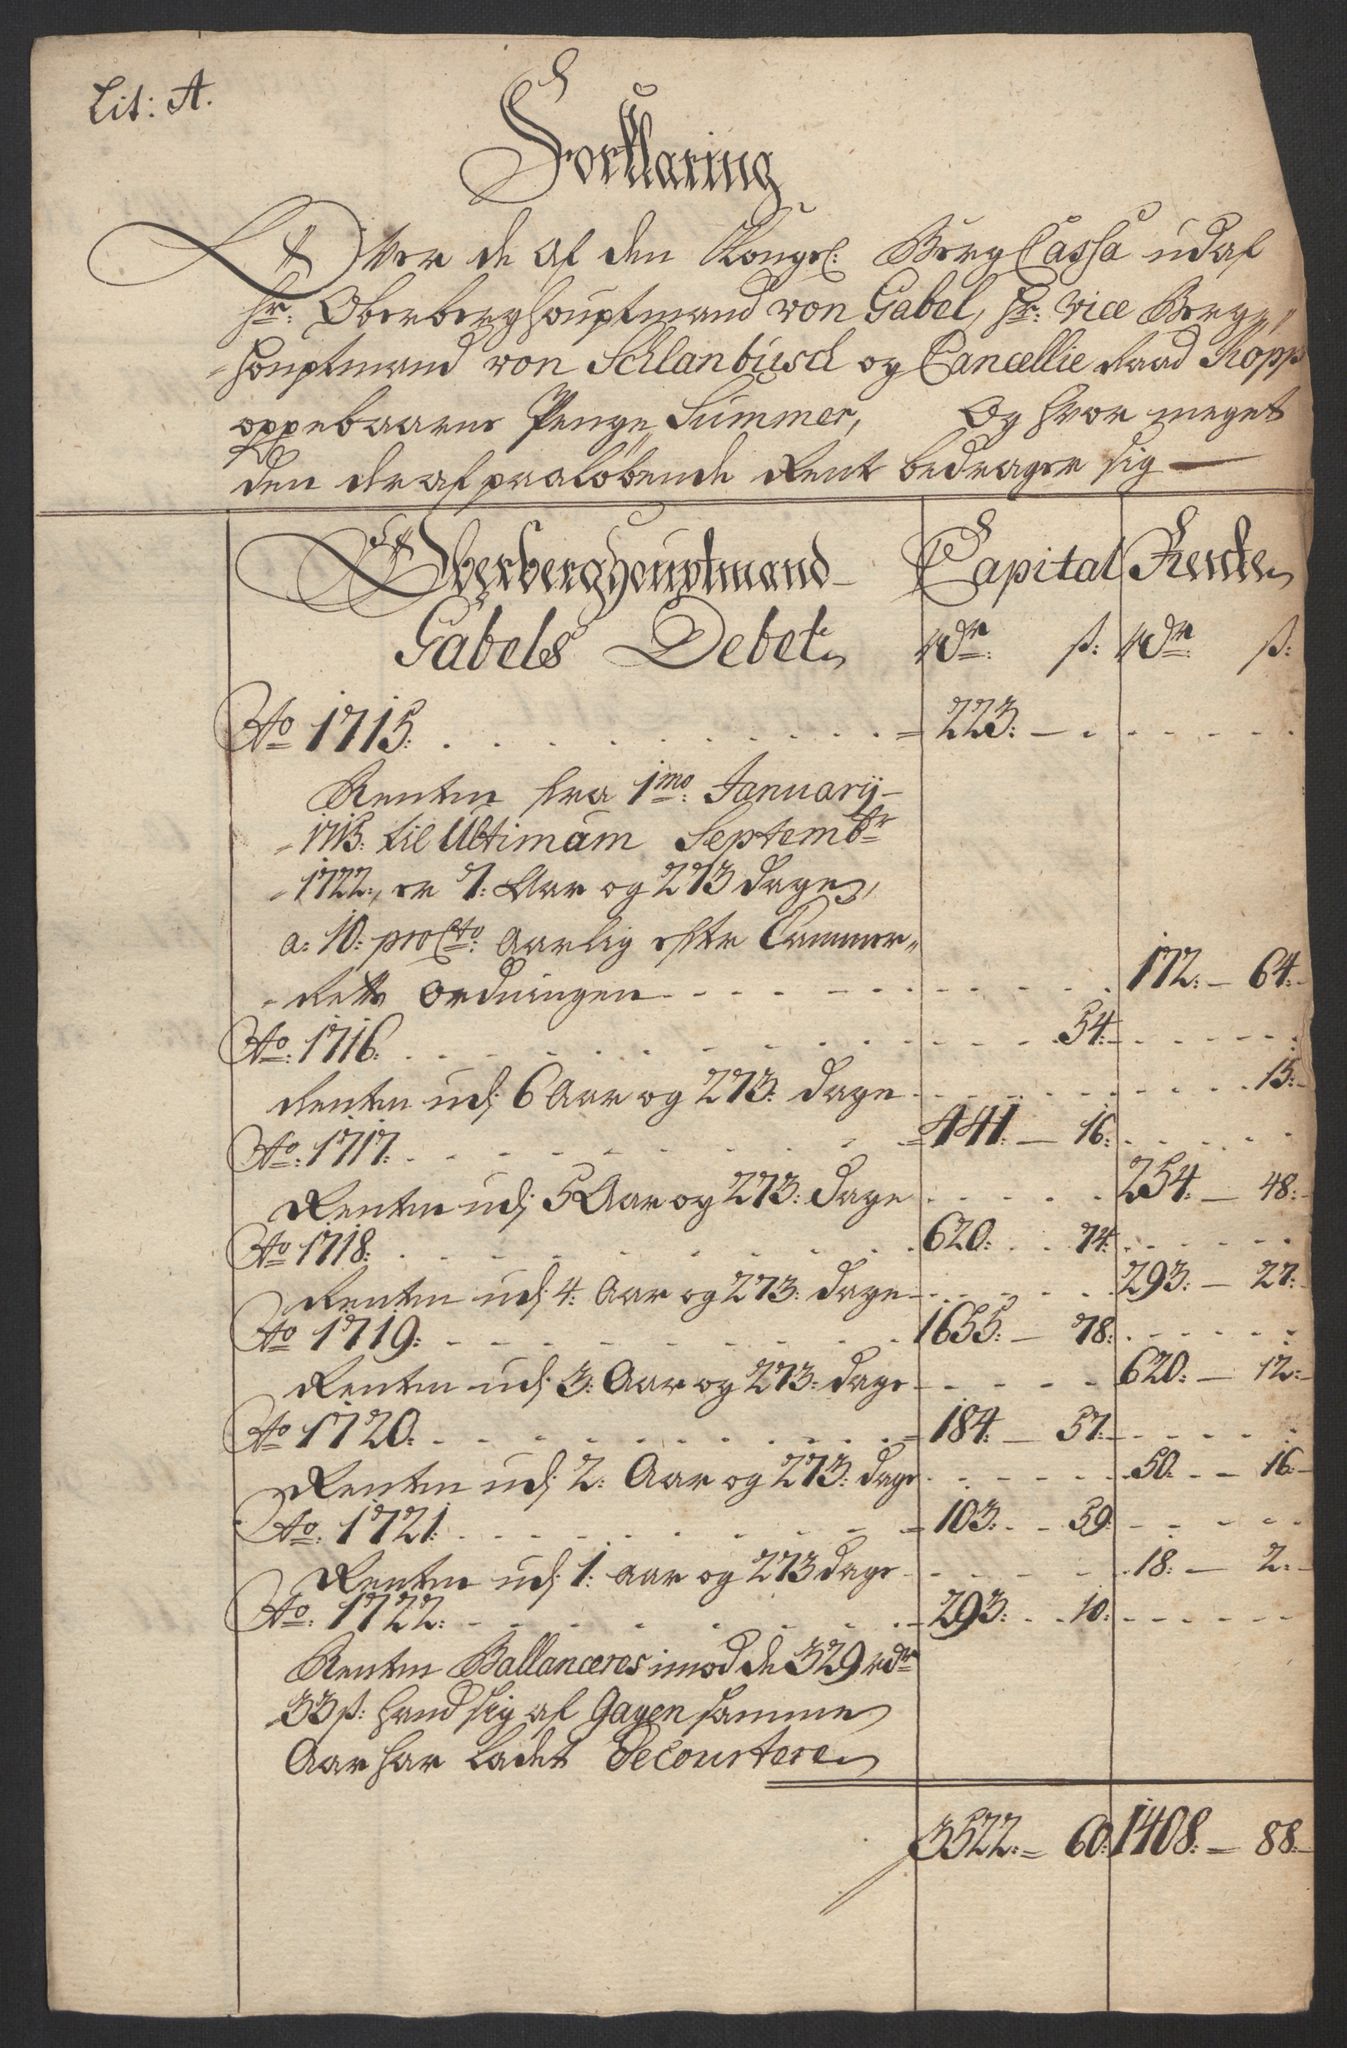 Lit: A.
Forklaring
Over de af den Kongel: Berg Cassa udaf
Hr: Oberberghouptmand von Gabel, Hr: Vice Berg„
„houptmand von Schlanbusch og Cancellie Raad Kopp
oppebaarne Penge Summer, Og hvor meget
den deraf præløbende Rent bedrager sig —
Oberberghouptmand Capital Rente
Gabels Debet rdr: ß: rdr: ß:
Ao 1715: 223: —
Renten fra 1mo: January
1715: til Ultimam Septembr
1722:, er 7: Aar og 273 dage,
a: 10: pro Cto: aarlig efter Cammer„
„Rets Ordningen 172: — 64:
Ao: 1716: 54:
Renten udj 6 Aar og 273: dage 15:
Ao: 1717: 441: — 16:
Renten udj 5 Aar og 273: dage 254: — 48:
Ao 1718: 620: 74:
Renten udj 4: Aar og 273: dage 293: — 27:
Ao 1719: 1655: — 78:
Renten udj 3: Aar og 273: dage 620: — 12:
Ao 1720: 184: — 57:
Renten udj 2: Aar og 273: dage 50: — 16:
Ao: 1721: 103: 59:
Renten udj 1: aar og 273 dage 18: — 2:
Ao: 1722: 293: 10:
Renten Ballanceres imod de 329 rdr
33 ß: hand sig af Gagen samme
Aar har ladet Decourtere
3522: 60: 1408: — 88: